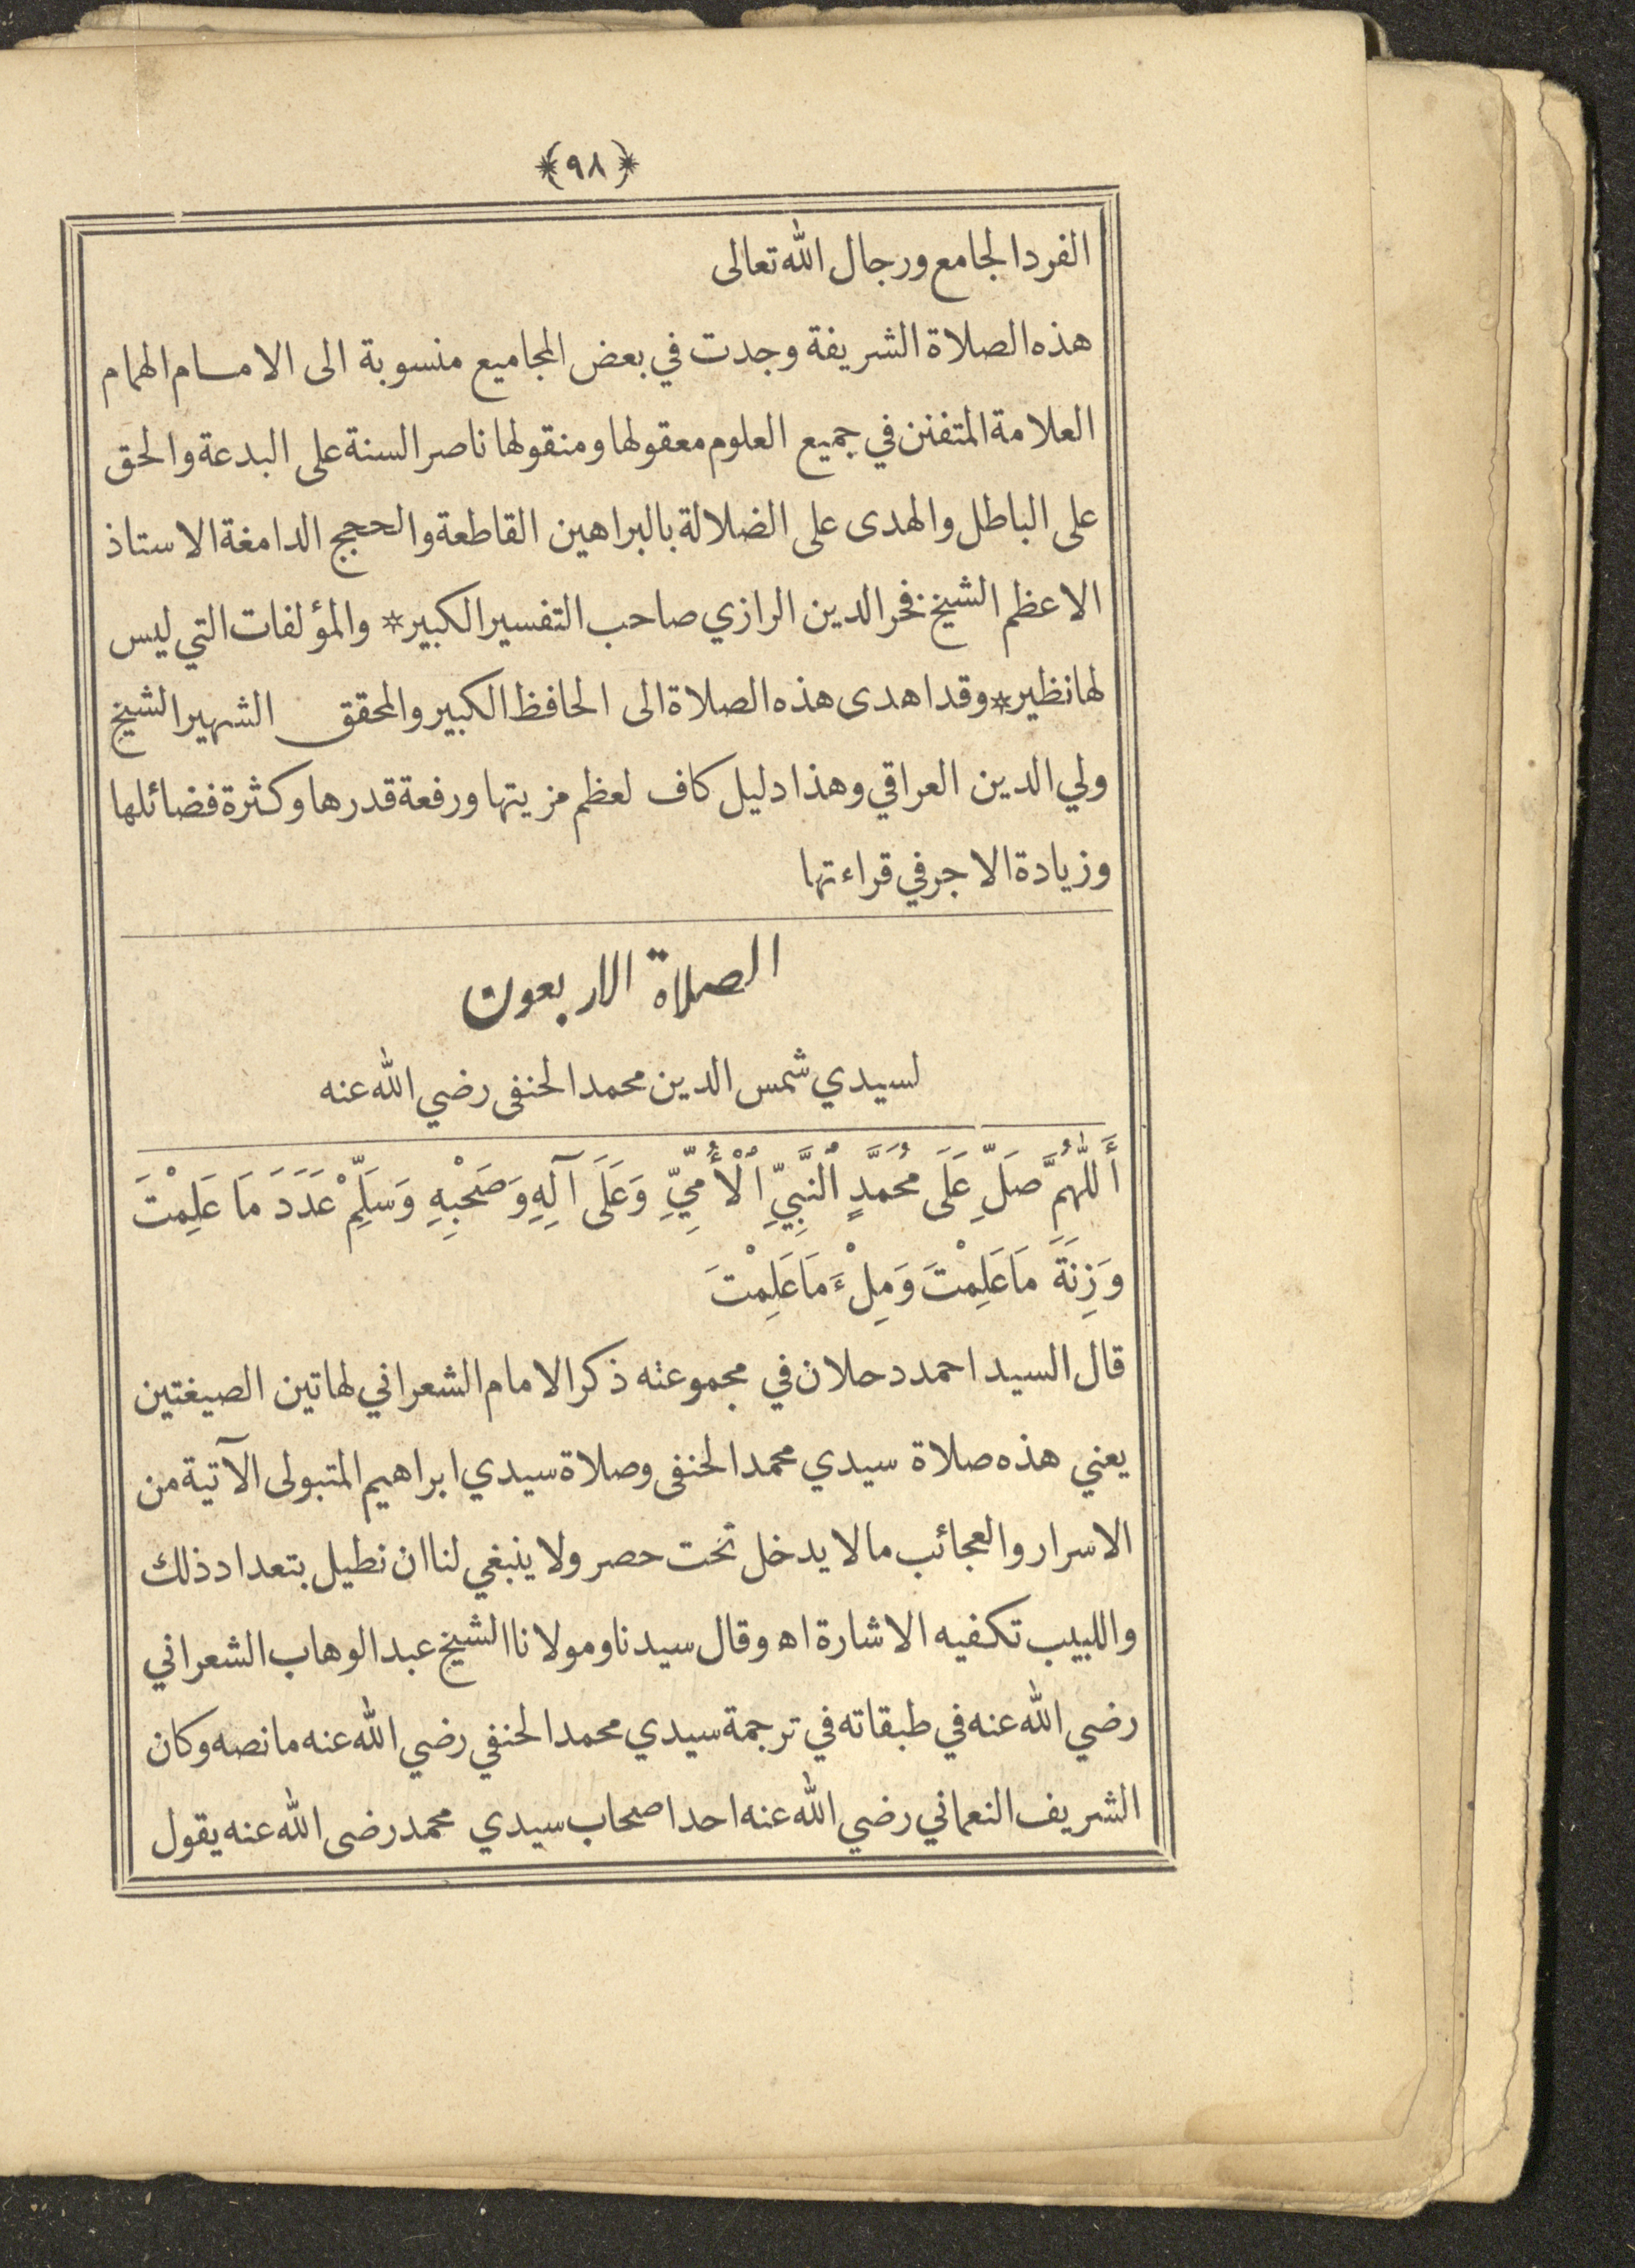 ﴿٩٨﴾
الفرد الجامع ورجال الله تعالى
هذه الصلاة الشريفة وجدت في بعض المجاميع منسوبة الى الامام الهمام
العلامة المتفنن في جميع العلوم معقولها ومنقولها ناصر السنة على البدعة والحق
على الباطل والهدى على الضلالة بالبراهين القاطعة والحجج الدامغة الاستاذ
الاعظم الشيخ فخر الدين الرازي صاحب التفسير الكبير * والمؤلفات التي ليس
لها نظير * وقد اهدى هذه الصلاة الى الحافظ الكبير والمحقق الشهير الشيخ
ولي الدين العراقي وهذا دليل كاف لعظم مزيتها ورفعة قدرها وكثرة فضائلها
وزيادة الاجر في قراءتها
الصلاة الاربعون
لسيدي شمس الدين محمد الحنفى رضي الله عنه
أَللّٰهُمَّ صَلِّ عَلَى مُحَمَّدٍ ٱلنَّبِيِّ ٱلْأُمِّيِّ وَعَلَى آلِهِ وَصَحْبِهِ وَسَلِّمْ عَدَدَ مَا عَلِمْتَ
وَزِنَةَ مَا عَلِمْتَ وَمِلْءَ مَا عَلِمْتَ
قال السيد احمد دحلان في مجموعته ذكر الامام الشعراني لهاتين الصيغتين
يعني هذه صلاة سيدي محمد الحنفى وصلاة سيدي ابراهيم المتبولى الآتية من
الاسرار والعجائب مالا يدخل تحت حصر ولا ينبغي لنا ان نطيل بتعداد ذلك
واللبيب تكفيه الاشارة اه وقال سيدنا ومولانا الشيخ عبد الوهاب الشعراني
رضي الله عنه في طبقاته في ترجمة سيدي محمد الحنفي رضي الله عنه ما نصه وكان
الشريف النعماني رضي الله عنه احد اصحاب سيدي محمد رضى الله عنه يقول